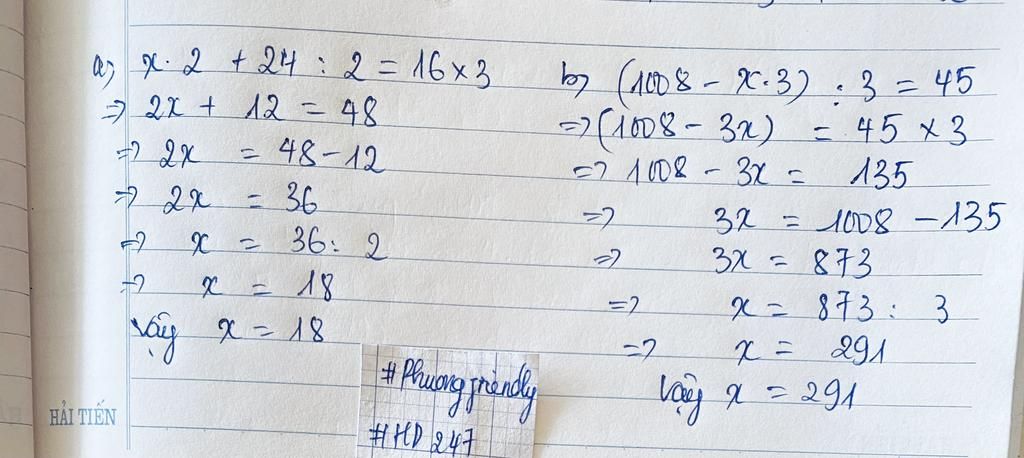 a) x . 2 + 24 : 2 = 16 x 3
=> 2x + 12 = 48
=> 2x = 48 - 12
=> 2x = 36
=> x = 36 : 2
=> x = 18
Vậy x = 18
b) (1008 - x . 3) : 3 = 45
=> (1008 - 3x) = 45 x 3
=> 1008 - 3x = 135
=> 3x = 1008 - 135
=> 3x = 873
=> x = 873 : 3
=> x = 291
Vậy x = 291
#Phuongfriendly
#HD247
HẢI TIẾN